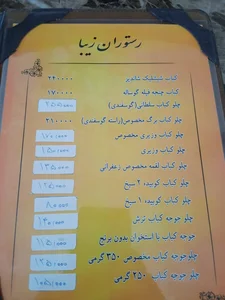 رستوران زیبا
کباب شیشلیک شاندیز ۲۴۰۰۰۰
کباب چنجه فیله گوساله ۱۷۰۰۰۰
چلو کباب سلطانی (گوسفندی) ۲۵۵/۰۰۰
چلو کباب برگ مخصوص (راسته گوسفندی) ۲۱۰۰۰۰
چلو کباب وزیری مخصوص ۱۷۰/۰۰۰
چلو کباب وزیری ۱۵۰/۰۰۰
چلو کباب لقمه مخصوص زعفرانی ۱۳۵/۰۰۰
چلو کباب کوبیده ۲ سیخ ۱۲۵/۰۰۰
چلو کباب کوبیده ۱ سیخ
چلو جوجه کباب ترش ۱۴۰/۰۰۰
جوجه کباب با استخوان بدون برنج ۱۱۵/۰۰۰
چلو جوجه کباب مخصوص ۳۵۰ گرمی
چلو جوجه کباب ۲۵۰ گرمی